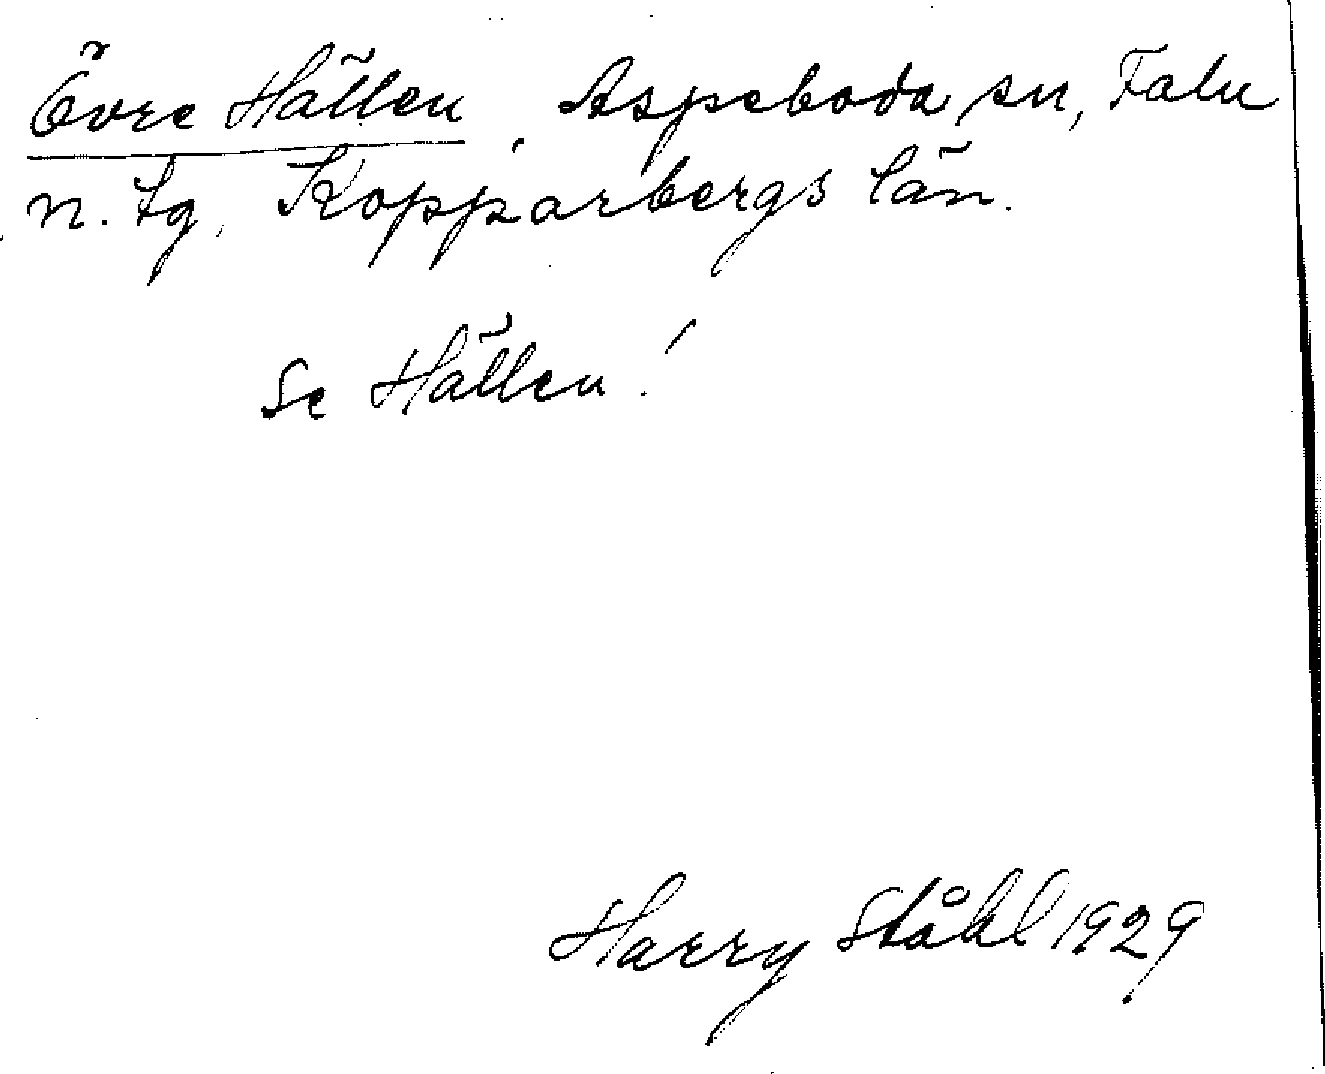 Övre Hällen, Aspeboda sn, Falu
n. tg, Kopparbergs län.
Se Hällen!
Harry Ståhl 1929